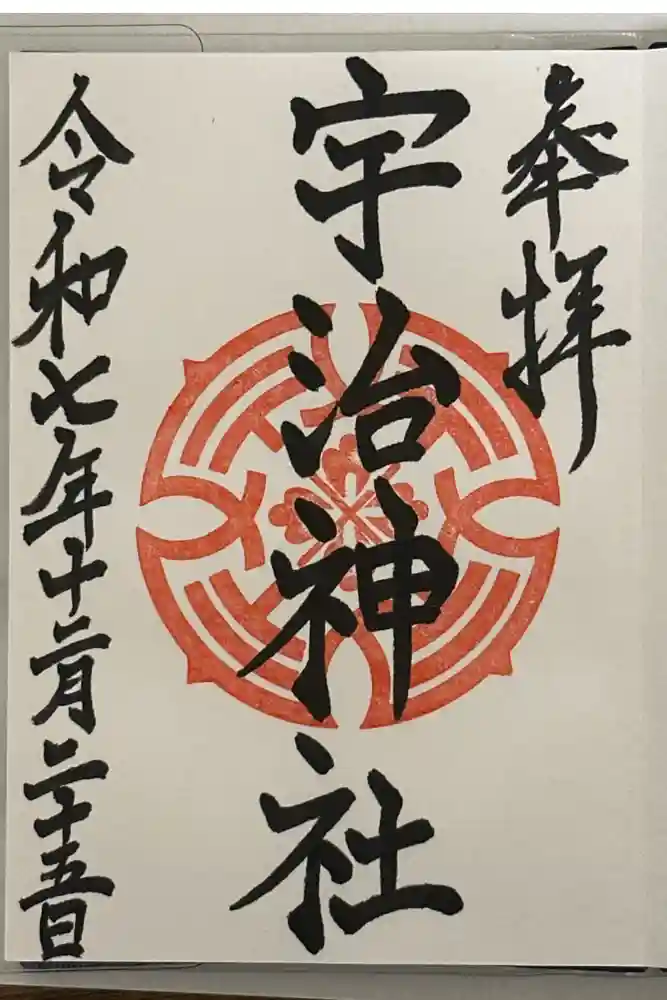 奉拝
宇治神社
令和七年十二月二十五日